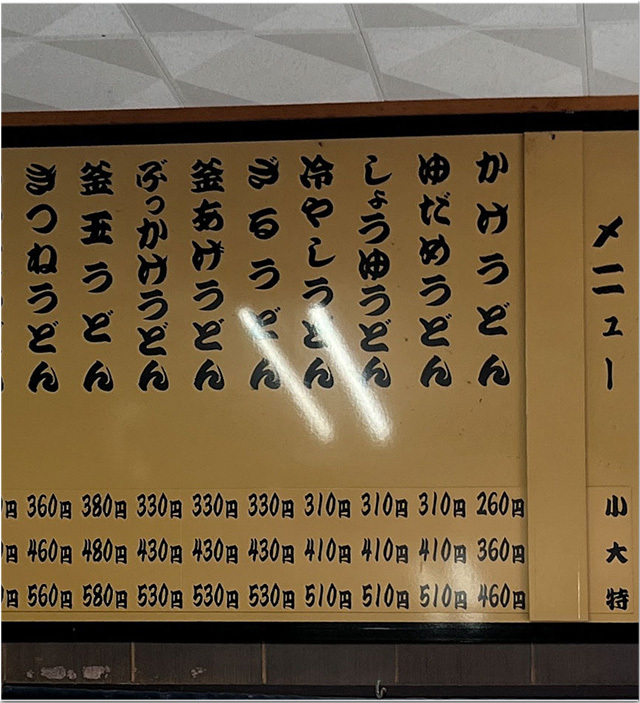 メニュー
かけうどん
ゆだめうどん
しょうゆうどん
冷やしうどん
ざるうどん
釜あげうどん
ぶっかけうどん
釜玉うどん
きつねうどん
小 260円 310円 310円 310円 330円 330円 330円 380円 360円
大 360円 410円 410円 410円 430円 430円 430円 480円 460円
特 460円 510円 510円 510円 530円 530円 530円 580円 560円